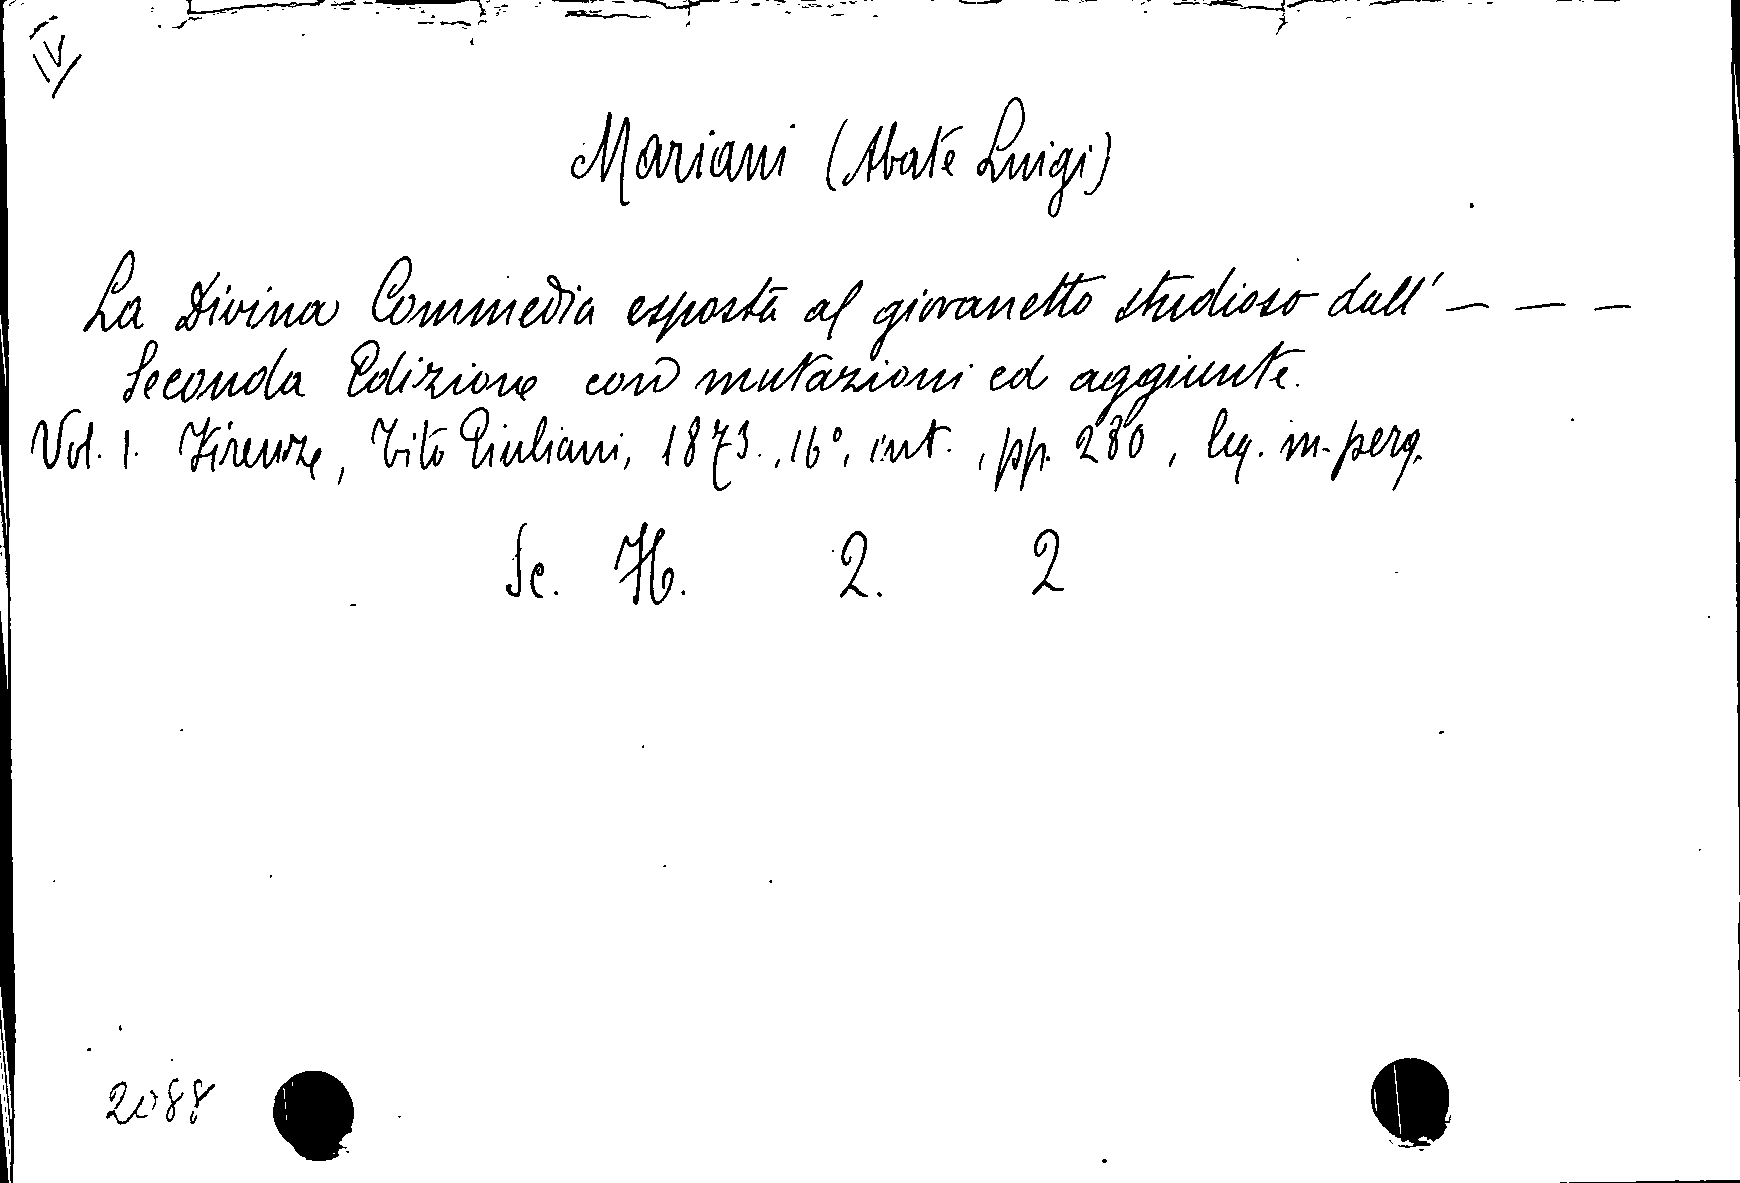 IV
Mariani (Abate Luigi)
La Divina Commedia esposta al giovanetto studioso dall' — — —
Seconda Edizione con mutazioni ed aggiunte.
Vol. 1. Firenze, Tito Giuliani, 1873., 16°, int., pp. 280, leg. m. perg.
Sc. H. 2. 2
2088